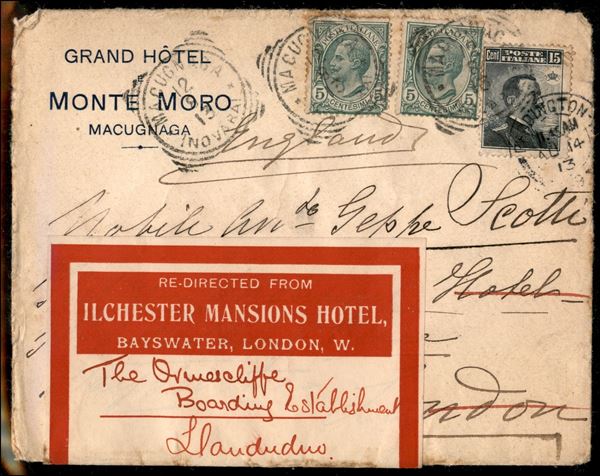 GRAND HÔTEL
MONTE MORO
MACUGNAGA
POSTE ITALIANE
5 CENTESIMI 5
5 CENTESIMI 5
Cent 15
POSTE ITALIANE
MACUGNAGA
12
13
(NOVARA)
PADDINGTON
AU 14
13
England
Nobile
Geppe Scotti
Hotel
London
RE-DIRECTED FROM
ILCHESTER MANSIONS HOTEL,
BAYSWATER, LONDON, W.
The Ormescliffe
Boarding Establishment
Llandudno.